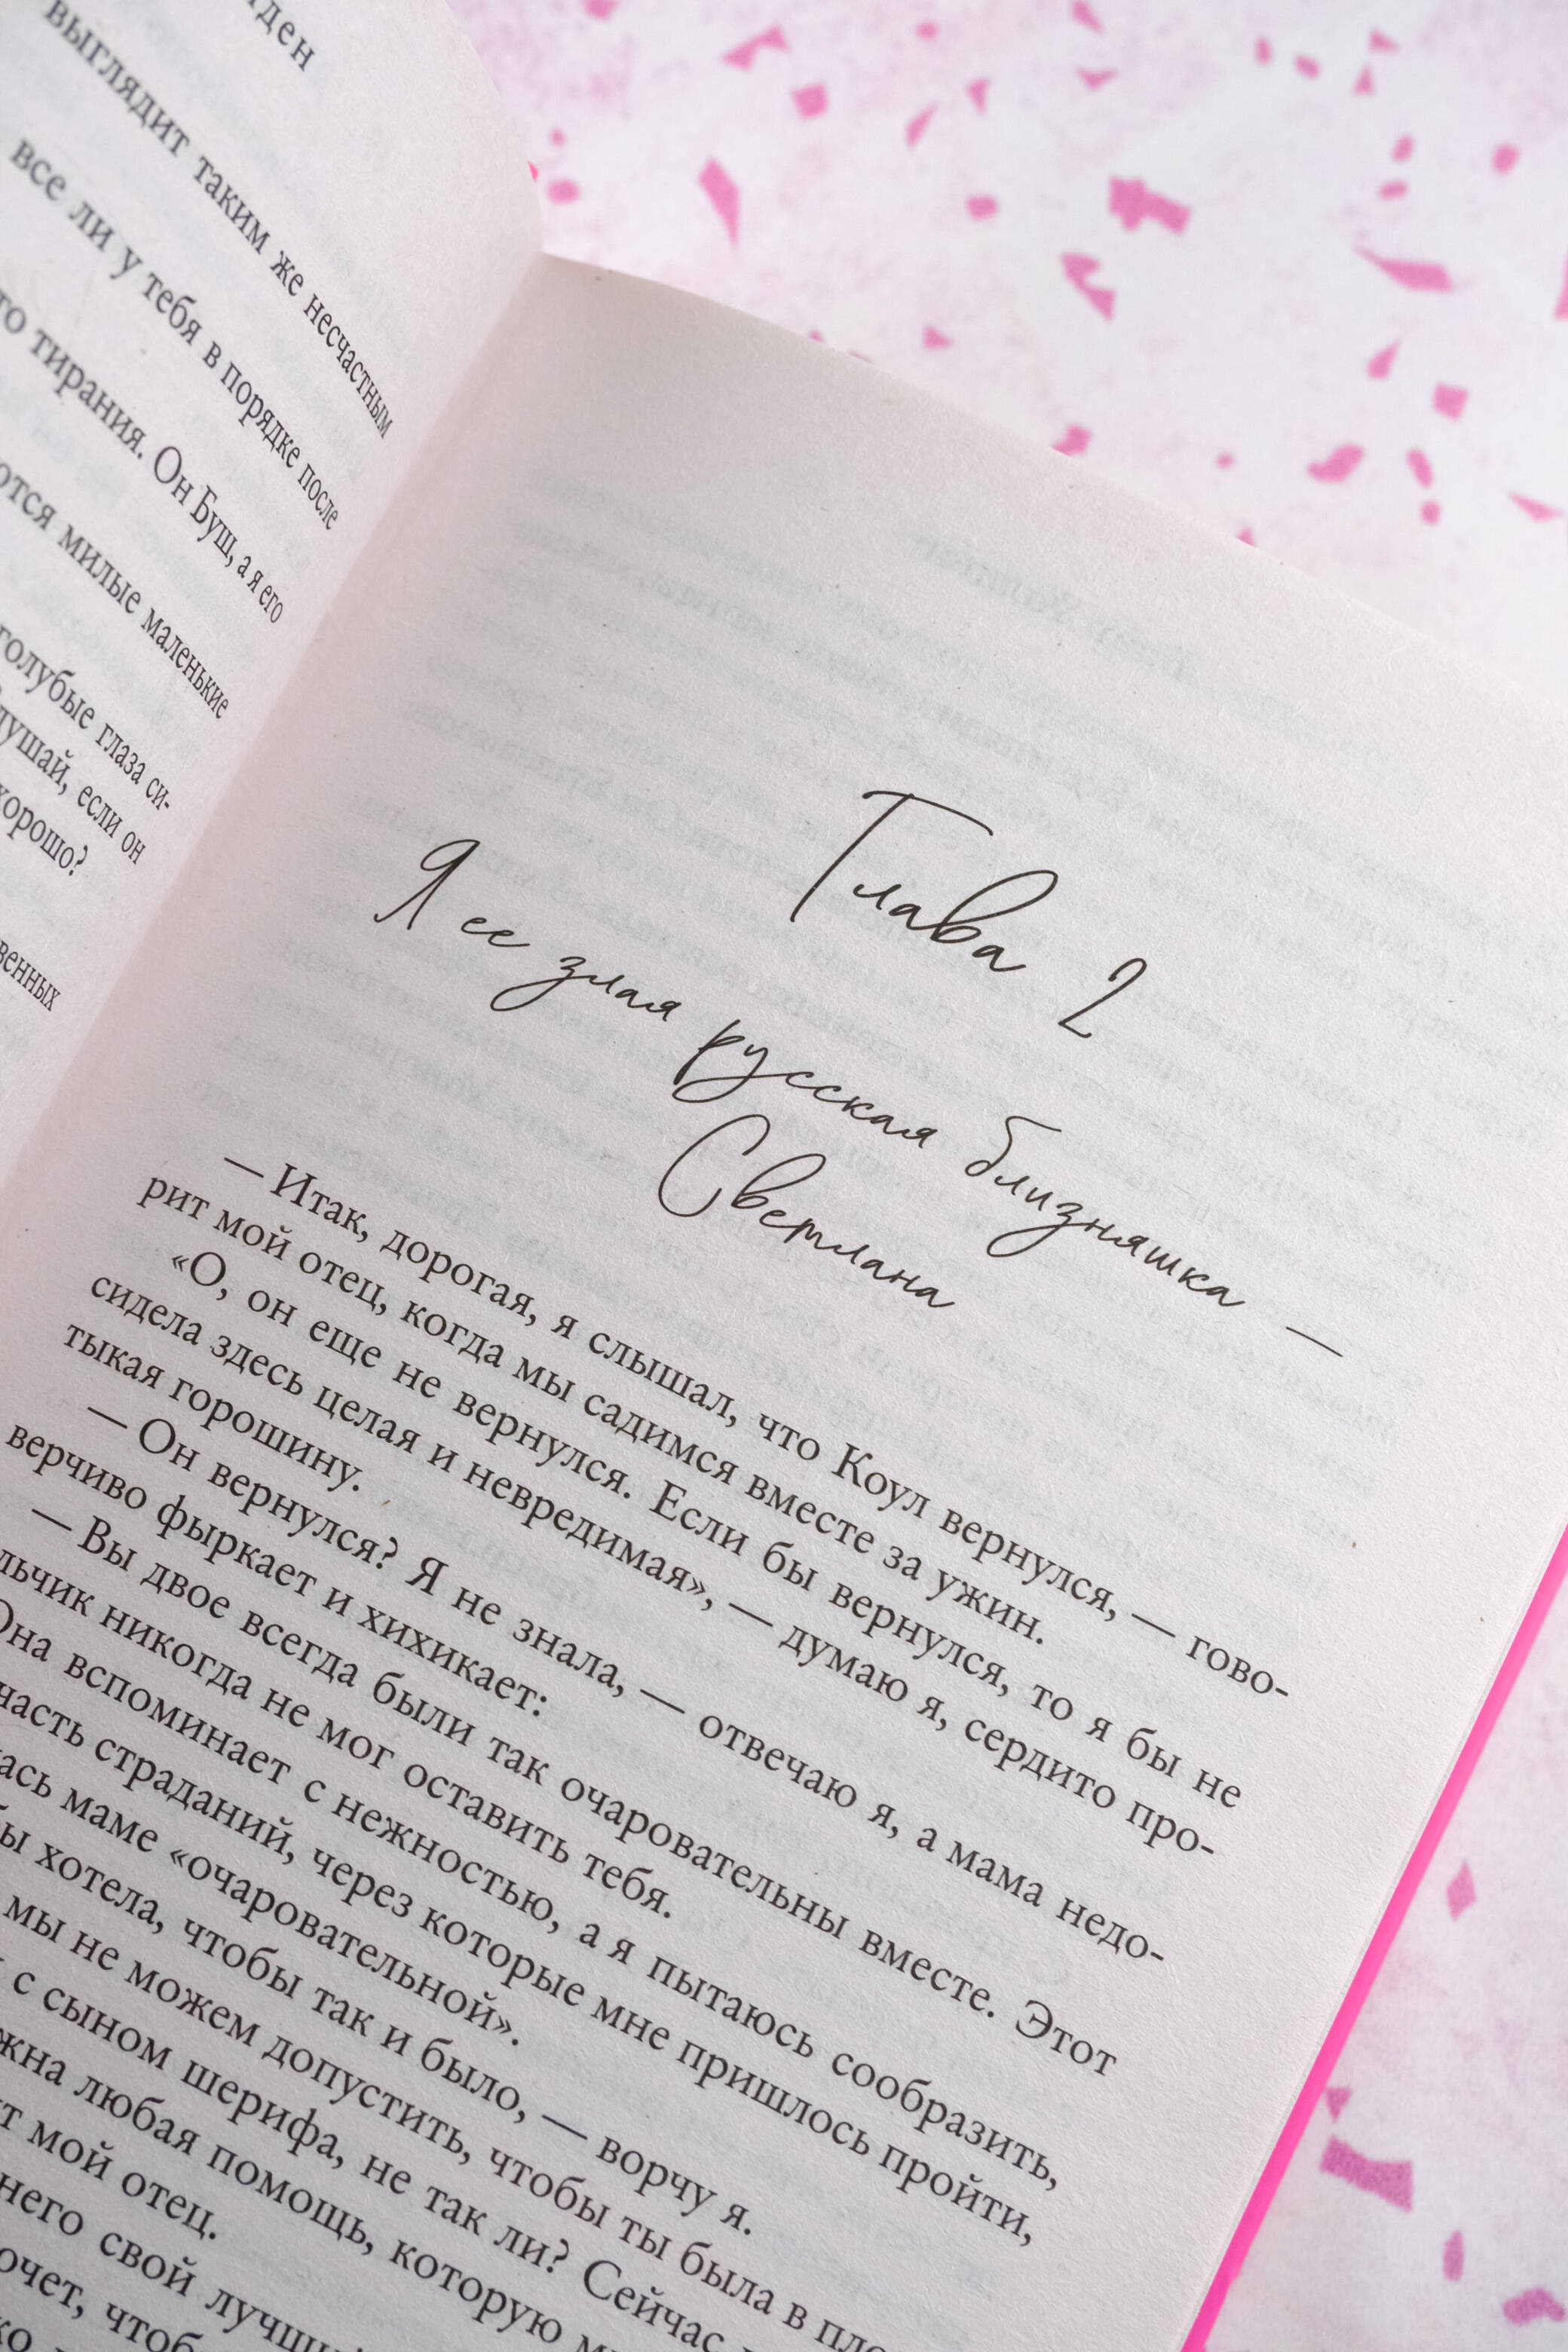 йден
выглядит таким же несчастным
все ли у тебя в порядке после
то тирания. Он Буш, а я его
ются милые маленькие
голубые глаза си-
лушай, если он
хорошо?
венных
Глава 2
Я ее злая русская близняшка —
Светлана
— Итак, дорогая, я слышал, что Коул вернулся, — гово-
рит мой отец, когда мы садимся вместе за ужин.
«О, он еще не вернулся. Если бы вернулся, то я бы не
сидела здесь целая и невредимая», — думаю я, сердито про-
тыкая горошину.
— Он вернулся? Я не знала, — отвечаю я, а мама недо-
верчиво фыркает и хихикает:
— Вы двое всегда были так очаровательны вместе. Этот
льчик никогда не мог оставить тебя.
Она вспоминает с нежностью, а я пытаюсь сообразить,
часть страданий, через которые мне пришлось пройти,
ась маме «очаровательной».
бы хотела, чтобы так и было, — ворчу я.
мы не можем допустить, чтобы ты была в пло
с сыном шерифа, не так ли? Сейчас
жна любая помощь, которую м
т мой отец.
него свой лучши
очет, чтоб